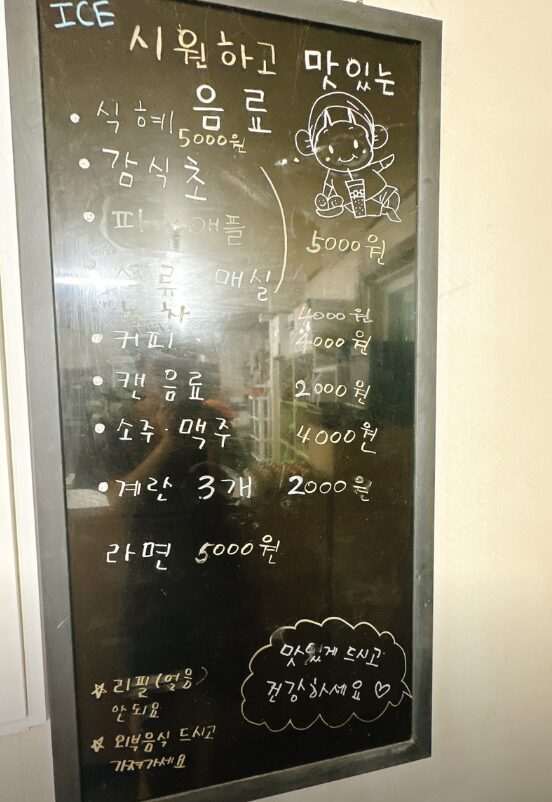 ICE
시원하고 맛있는
음료
• 식혜 5000원
• 감식초
• 파인애플
석류 · 매실 5000원
녹차 4000원
• 커피 4000원
• 캔음료 2000원
• 소주·맥주 4000원
• 계란 3개 2000원
라면 5000원
맛있게 드시고
건강하세요 ♡
☆ 리필(얼음)
안되요
☆ 외부음식 드시고
가져가세요